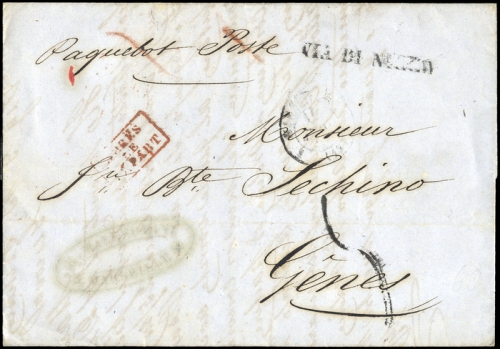 Paquebot Poste
VIA DI NIZZA
APRÈS
LE
DÉPART
Monsieur
Jn Bte Sechino
Gênes